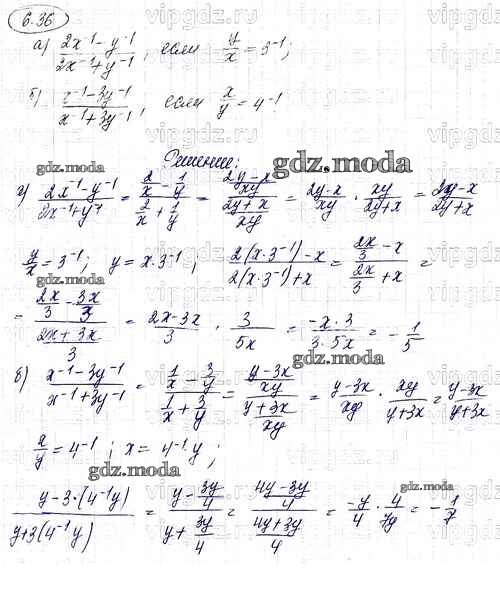 6.36
а) (2x⁻¹ - y⁻¹)/(2x⁻¹ + y⁻¹), если y/x = 3⁻¹;
б) (x⁻¹ - 3y⁻¹)/(x⁻¹ + 3y⁻¹), если x/y = 4⁻¹
Решение:
gdz.moda
gdz.moda
а) (2x⁻¹ - y⁻¹)/(2x⁻¹ + y⁻¹) = (2/x - 1/y)/(2/x + 1/y) = ((2y - x)/xy)/((2y + x)/xy) = (2y - x)/xy · xy/(2y + x) = (2y - x)/(2y + x)
gdz.moda
y/x = 3⁻¹; y = x · 3⁻¹; (2(x · 3⁻¹) - x)/(2(x · 3⁻¹) + x) = (2x/3 - x)/(2x/3 + x) =
= (2x/3 - 3x/3)/((2x + 3x)/3) = (2x - 3x)/3 · 3/5x = (-x · 3)/(3 · 5x) = -1/5
gdz.moda
gdz.moda
б) (x⁻¹ - 3y⁻¹)/(x⁻¹ + 3y⁻¹) = (1/x - 3/y)/(1/x + 3/y) = ((y - 3x)/xy)/((y + 3x)/xy) = (y - 3x)/xy · xy/(y + 3x) = (y - 3x)/(y + 3x)
x/y = 4⁻¹; x = 4⁻¹y;
gdz.moda
gdz.moda
(y - 3·(4⁻¹y))/(y + 3(4⁻¹y)) = (y - 3y/4)/(y + 3y/4) = ((4y - 3y)/4)/((4y + 3y)/4) = -y/4 · 4/7y = -1/7